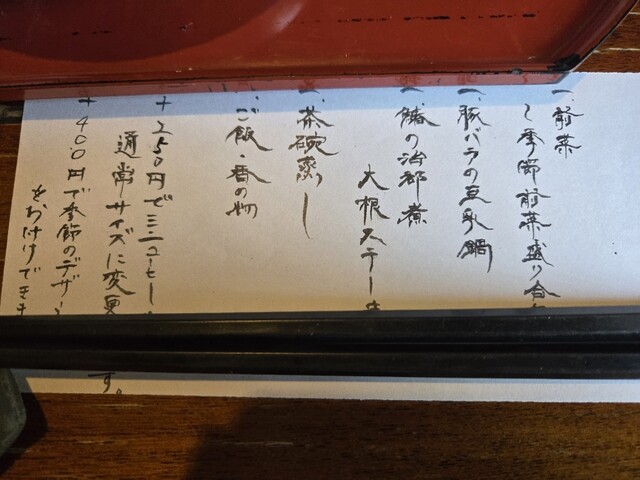 一、前菜
〜季節前菜盛り合
一、豚バラの豆乳鍋
一、鰆の治部煮
大根ステーキ
一、茶碗蒸し
一、ご飯・香の物
+250円でミニコーヒー
通常サイズに変更
す。
+400円で季節のデザー
をお付けでき